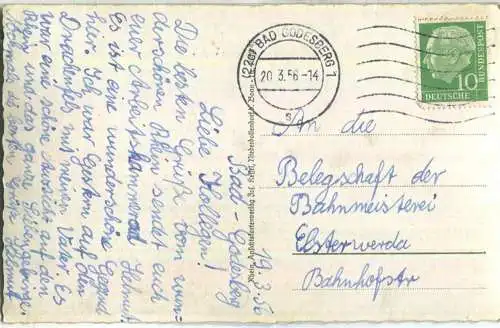 Bad-Godesberg 19.3.56
Liebe Kollegen!
Die besten Grüße vom wun-
derschönen Rhein sendet euch
euer Arbeitskamerad Helmut.
Es ist eine wunderschöne Gegend
hier. Ich war gestern auf dem
Drachenfels mit meinen Vater. Es
war eine schöne Aussicht auf den
Rhein und das ganze Siebengebirge.
(22c) BAD GODESBERG 1
20.3.56-14
s
DEUTSCHE
BUNDESPOST
10
An die
Belegschaft der
Bahnmeisterei
Elsterwerda
Bahnhofstr